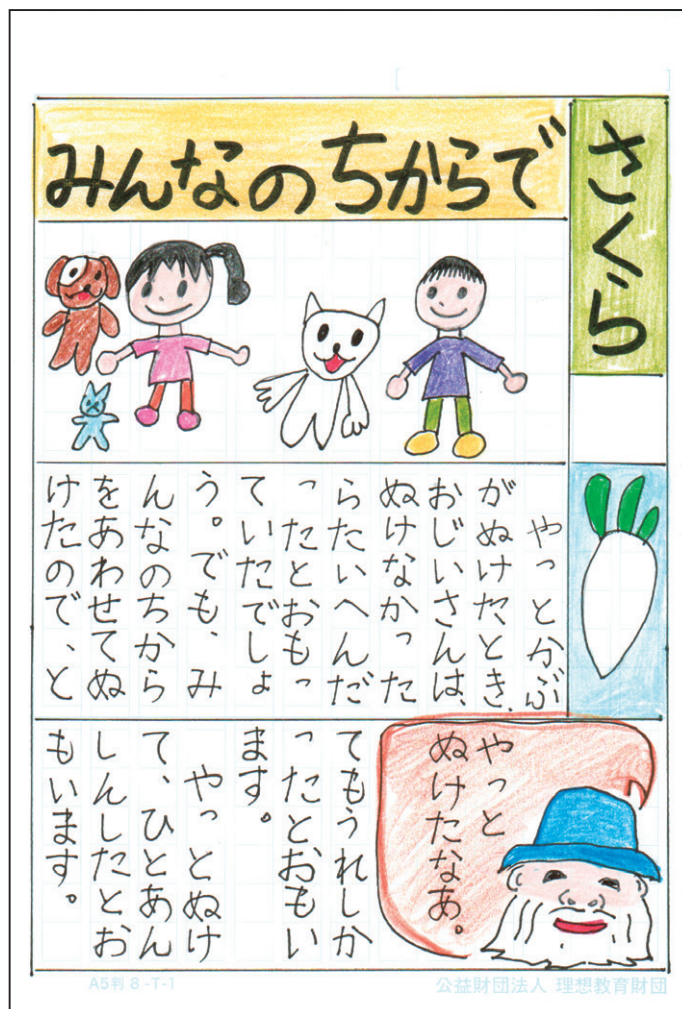 さくら
みんなのちからで
やっとかぶ
がぬけたとき、
おじいさんは、
ぬけなかった
らたいへんだ
ったとおもっ
ていたでしょ
う。でも、み
んなのちから
をあわせてぬ
けたので、と
やっと
ぬけたなあ。
てもうれしか
ったとおもい
ます。
やっとぬけ
て、ひとあん
しんしたとお
もいます。
A5判 8-T-1
公益財団法人 理想教育財団